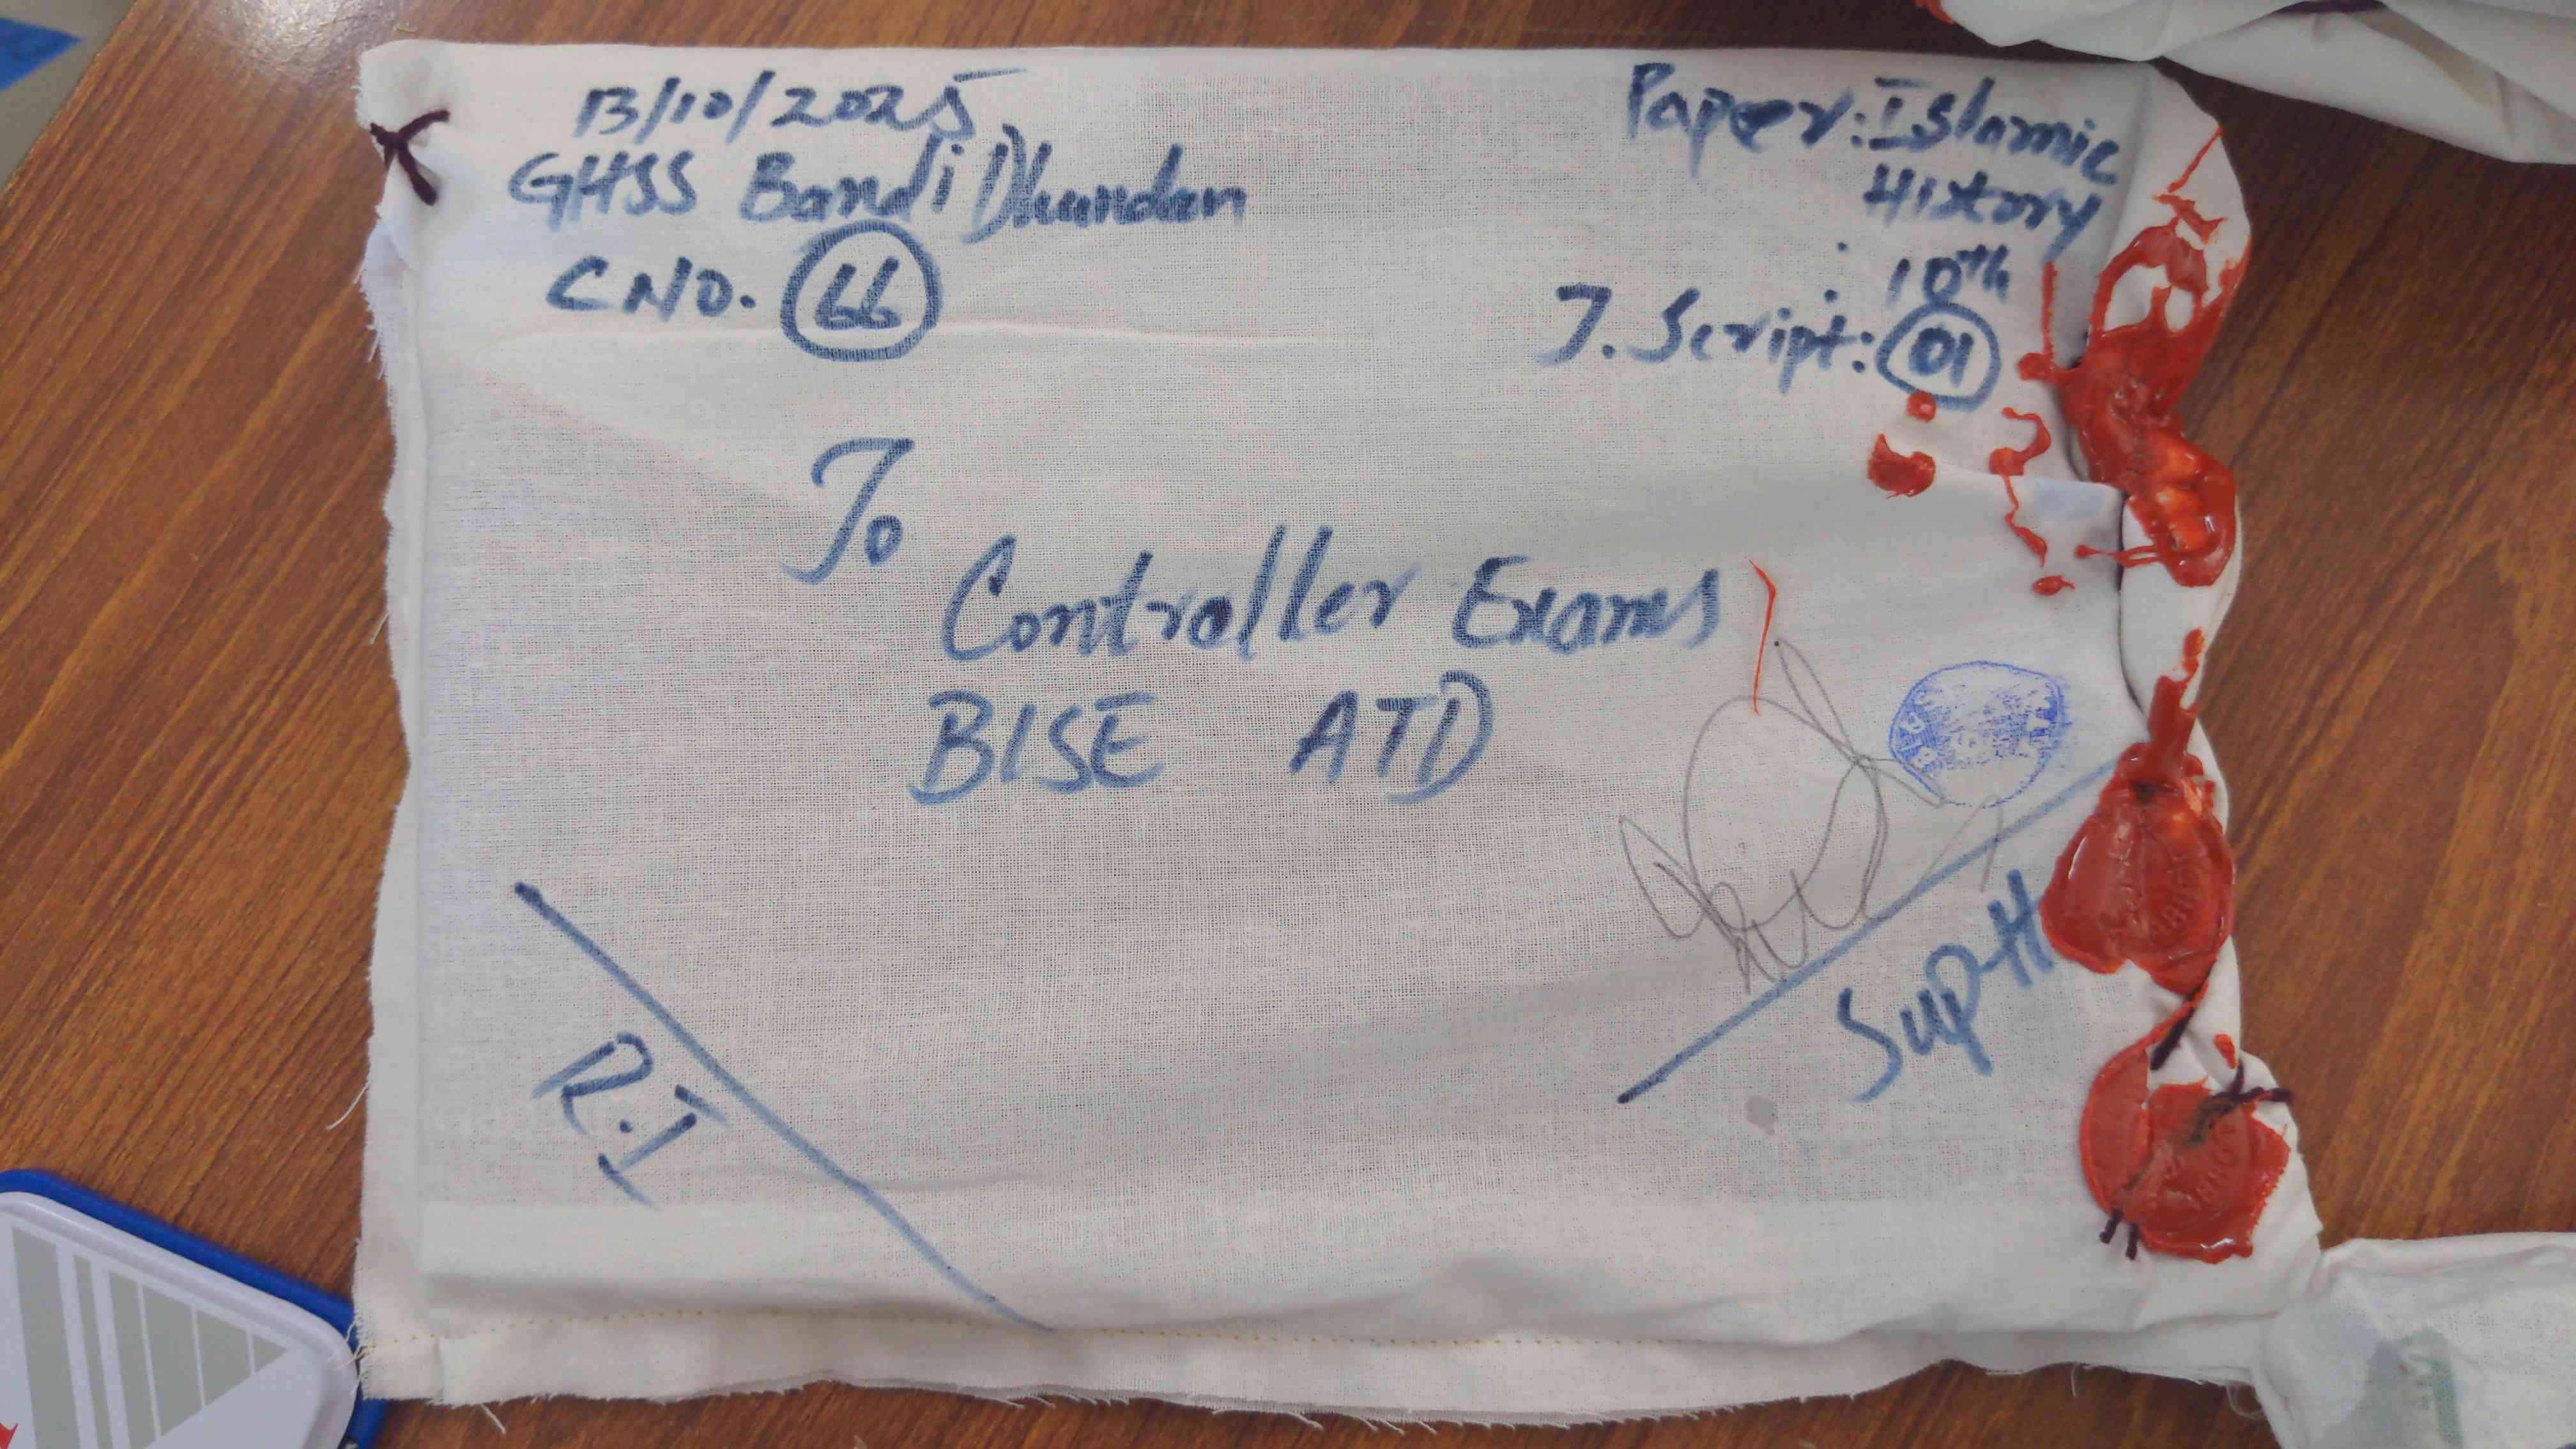 13/10/2025
GHSS Bandi Dhundan
C NO. 66
Paper: Islamic
History
: 10th
: T. Script: 01
To
Controller Exams
BISE ATD
R.I
Sup-tt